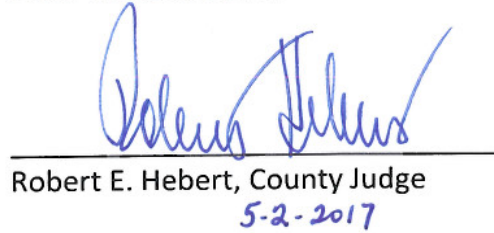 Robert Hebert
Robert E. Hebert, County Judge
5-2-2017